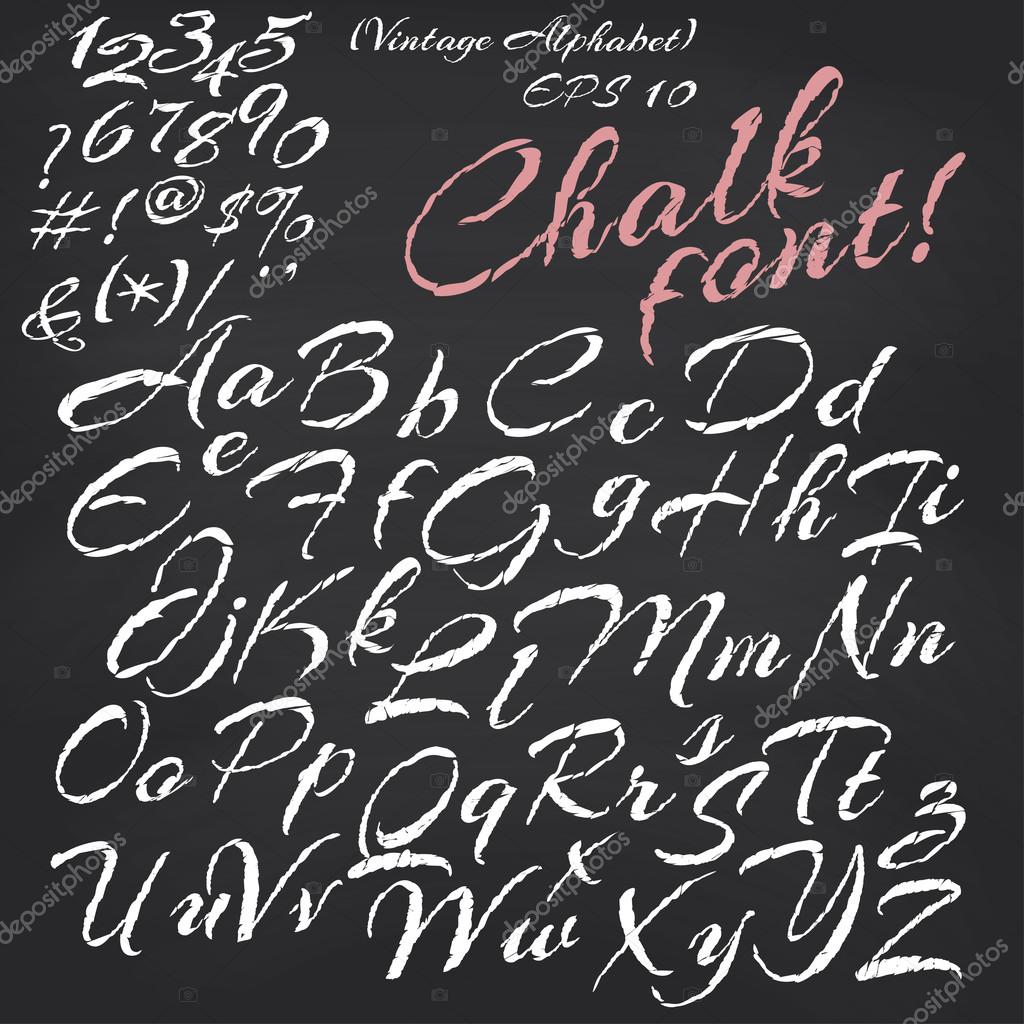 12345
(Vintage Alphabet)
EPS 10
?67890
Chalk
font!
#!@$%
&(*)/¨’
AaBbCcDd
EeFfGgHhIi
JjKkLlMmNn
OoPpQqRrsSTt
UuVvWwxXyYzZ
depositphotos